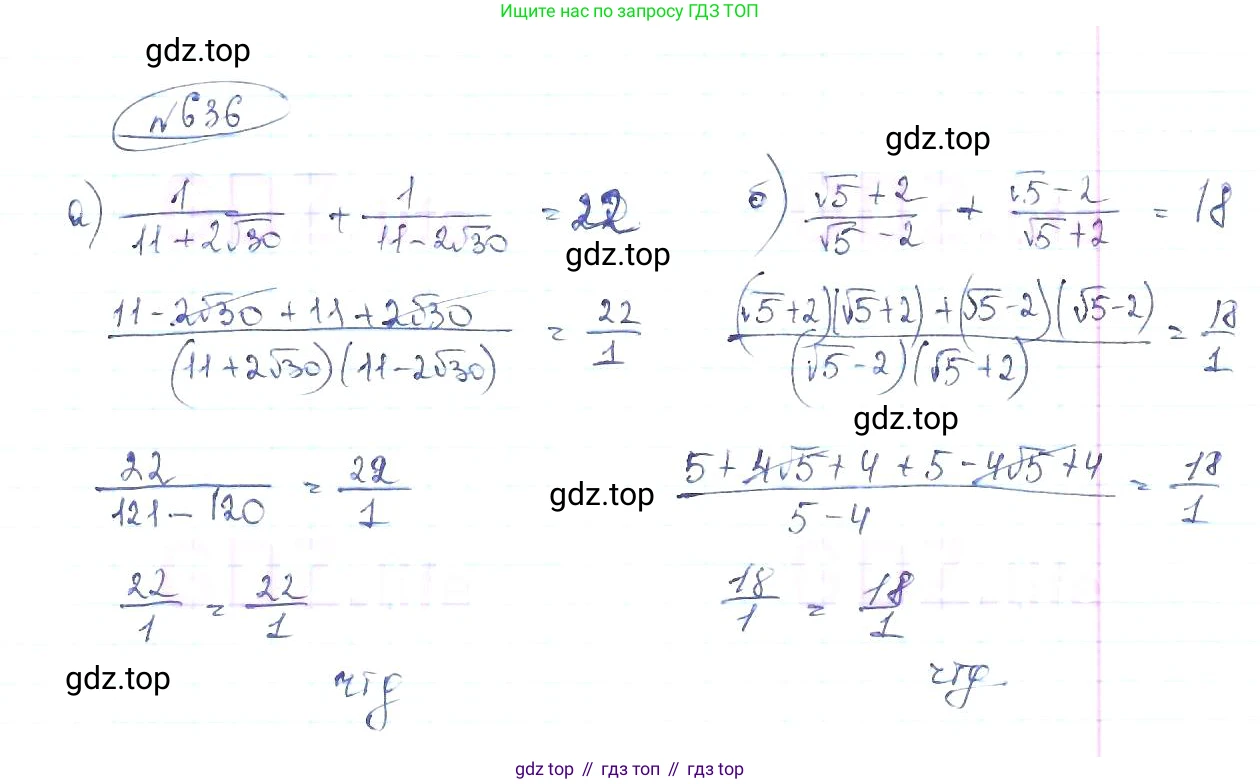 Ищите нас по запросу ГДЗ ТОП
gdz.top
№636
gdz.top
а) 1/(11+2√30) + 1/(11-2√30) = 22
gdz.top
(11-2√30+11+2√30)/((11+2√30)(11-2√30)) = 22/1
22/(121-120) = 22/1
gdz.top
22/1 = 22/1
gdz.top
чтд
б) (√5+2)/(√5-2) + (√5-2)/(√5+2) = 18
((√5+2)(√5+2)+(√5-2)(√5-2))/((√5-2)(√5+2)) = 18/1
gdz.top
(5+4√5+4+5-4√5+4)/(5-4) = 18/1
18/1 = 18/1
чтд
gdz top // гдз топ // гдз top